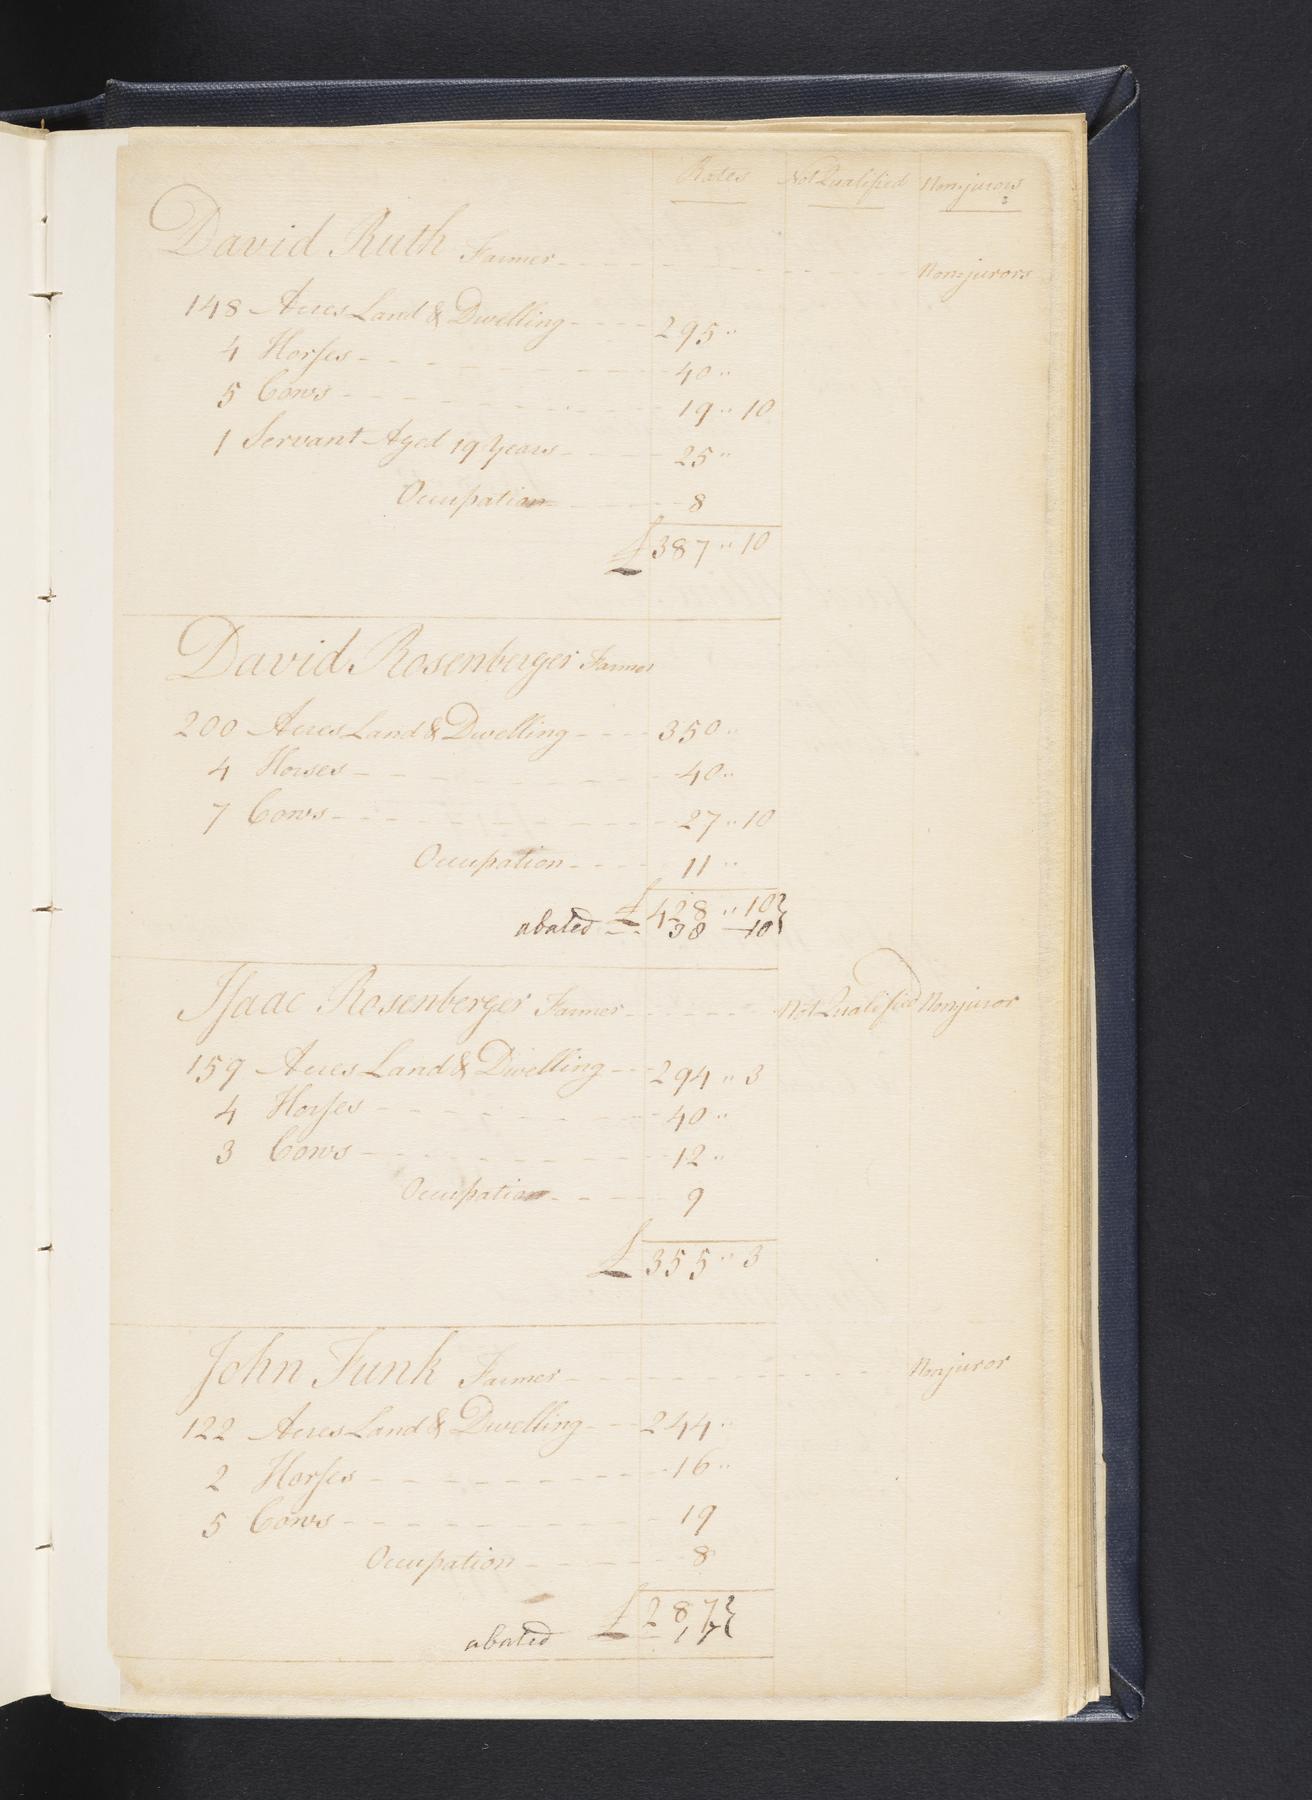 Rates Not Qualified Nonjurors
David Ruth Farmer Nonjurors
148 Acres Land & Dwelling 295 ..
4 Horses 40 ..
5 Cows 19 .. 10
1 Servant Aged 19 Years 25 ..
Occupation 8
£ 387 .. 10
David Rosenberger Farmer
200 Acres Land & Dwelling 350 ..
4 Horses 40 ..
7 Cows 27 .. 10
Occupation 11 ..
£ 428 .. 10
abated 38 10
Isaac Rosenberger Farmer Not Qualified Nonjuror
159 Acres Land & Dwelling 294 .. 3
4 Horses 40 ..
3 Cows 12 ..
Occupation 9
£ 355 .. 3
John Funk Farmer Nonjuror
122 Acres Land & Dwelling 244 ..
2 Horses 16 ..
5 Cows 19
Occupation 8
£ 287
abated 17